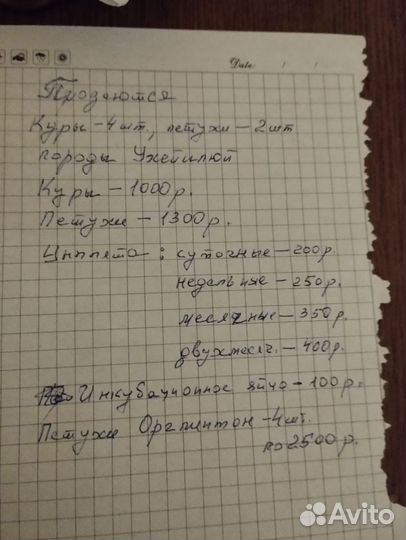 Date: / /
Продаются
Куры - 4 шт, петухи - 2 шт
породы Ухейилюй
Куры - 1000 р.
Петухи - 1300 р.
Цыплята: суточные - 200 р.
недельные - 250 р.
месячные - 350 р.
двухмесяч. - 400 р.
Инкубационное яйцо - 100 р.
Петухи Орпинтон - 4 шт.
по 2500 р.
Avito